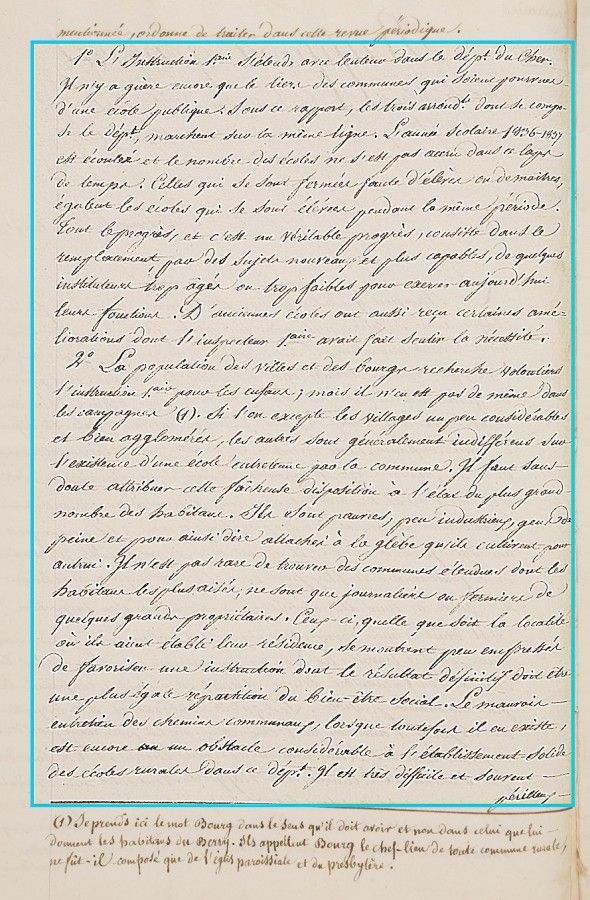 mentionnée, ordonne de traiter dans cette revue périodique.
1° L'Instruction 1.aire s'étend avec lenteur dans le dép.t du Cher.
Il n'y a guère encore que le tiers des communes qui soient pourvues
d'une école publique. Sous ce rapport, les trois arrond.ts dont se compo-
se le dép.t, marchent sur la même ligne. L'année scolaire 1836-1837
est écoulée et le nombre des écoles ne s'est pas accru dans ce laps
de temps. Celles qui se sont fermées faute d'élèves ou de maîtres,
égalent les écoles qui se sont élevées pendant la même période.
Tout le progrès, et c'est un véritable progrès, consiste dans le
remplacement, par des sujets nouveaux et plus capables, de quelques
instituteurs trop âgés ou trop faibles pour exercer aujourd'hui
leurs fonctions. D'anciennes écoles ont aussi reçu certaines amé-
liorations dont l'inspecteur 1.aire avait fait sentir la nécessité.
2° La population des villes et des bourgs recherche volontiers
l'instruction 1.aire pour les enfans ; mais il n'en est pas de même dans
les campagnes (1). Si l'on excepte les villages un peu considérables
et bien agglomérés, les autres sont généralement indifférens sur
l'existence d'une école entretenue par la commune. Il faut sans-
doute attribuer cette fâcheuse disposition à l'état du plus grand
nombre des habitans. Ils sont pauvres, peu industrieux, gens de
peine et pour ainsi dire attachés à la glèbe qu'ils cultivent pour
autrui. Il n'est pas rare de trouver des communes étendues dont les
habitans les plus aisés, ne sont que journaliers ou fermiers de
quelques grands propriétaires. Ceux-ci, quelle que soit la localité
où ils aient établi leur résidence, se montrent peu empressés
de favoriser une instruction dont le résultat définitif doit être
une plus égale repartition du bien-être social. Le mauvais
entretien des chemins communaux, lorsque toutefois il en existe,
est encore un obstacle considérable à l'établissement solide
des écoles rurales dans ce dép.t. Il est très difficile et souvent
périlleux
(1) Je prends ici le mot Bourg dans le sens qu'il doit avoir et non dans celui que lui
donnent les habitans du Berry. Ils appellent Bourg le chef-lien de toute commune rurale,
ne fût-il composé que de l'église paroissiale et du presbytère.